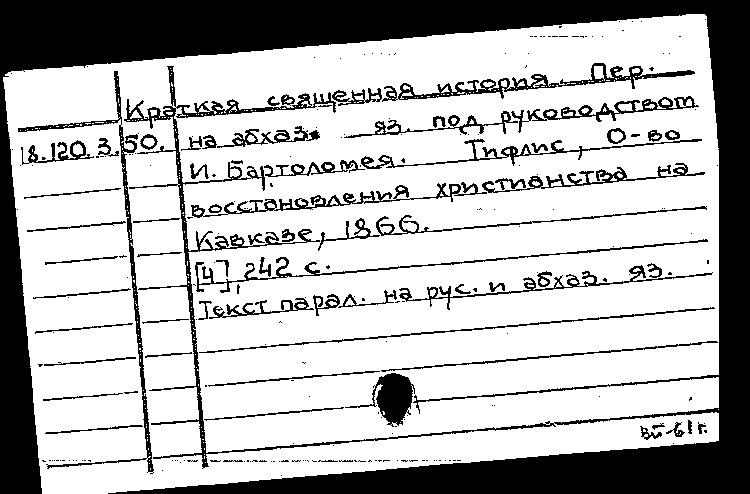 Краткая священная история. Пер.
18.120.3.50. на абхаз. яз. под руководством
И. Бартоломея. Тифлис, О-во
восстановления христианства на
Кавказе, 1866.
[4], 242 с.
Текст парал. на рус. и абхаз. яз.